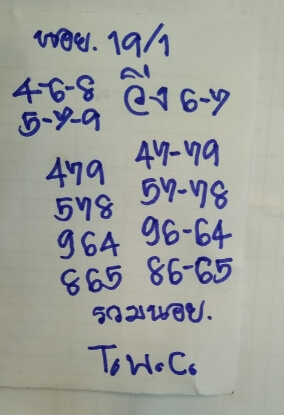 หอย. 19/1
4-6-8 วิ่ง 6-7
5-7-9
479 47-79
578 57-78
964 96-64
865 86-65
รวมนอย.
T. W. C.